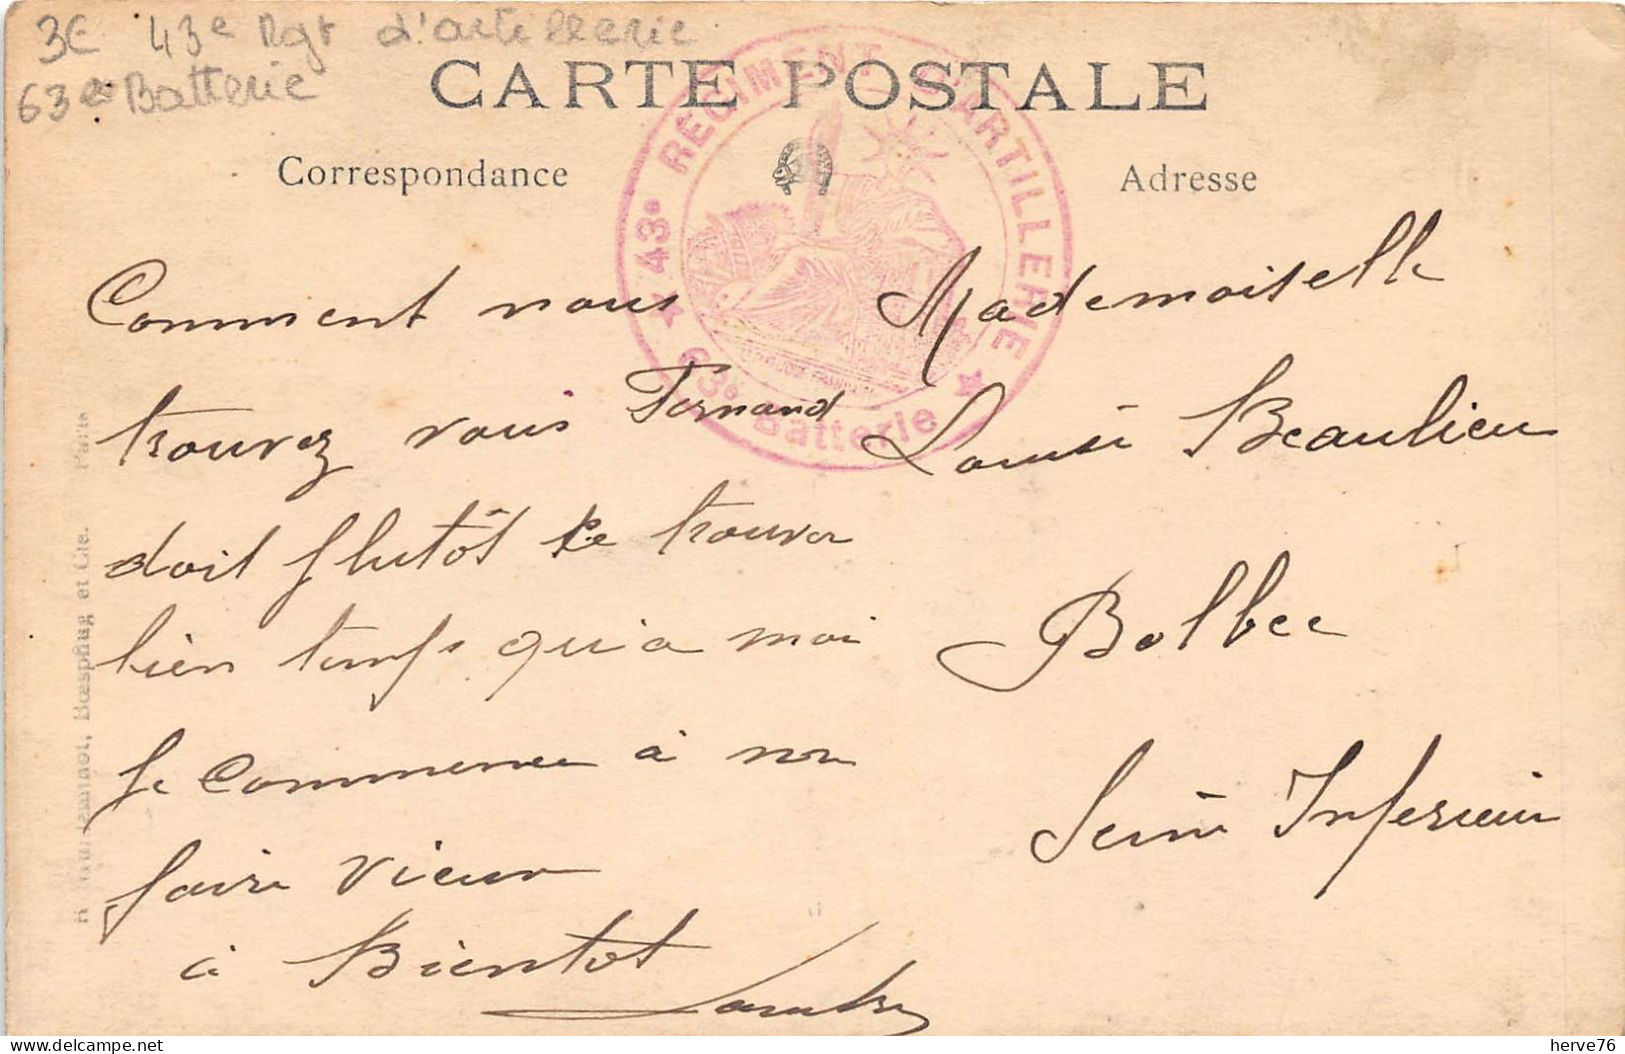 3€ 43e Rgt d'artillerie
63e Batterie
CARTE POSTALE
Correspondance
Adresse
★ 43e RÉGIMENT D'ARTILLERIE ★
63e Batterie
Comment nous
trouvez vous Fernand
doit plutôt se trouver
bien temps qu'a moi
je commence à me
faire vieux
à Bientot
Mademoiselle
Louise Beaulieu
Bolbec
Seine Inferieure
Bœspflug et Cie. Paris
delcampe.net
herve76